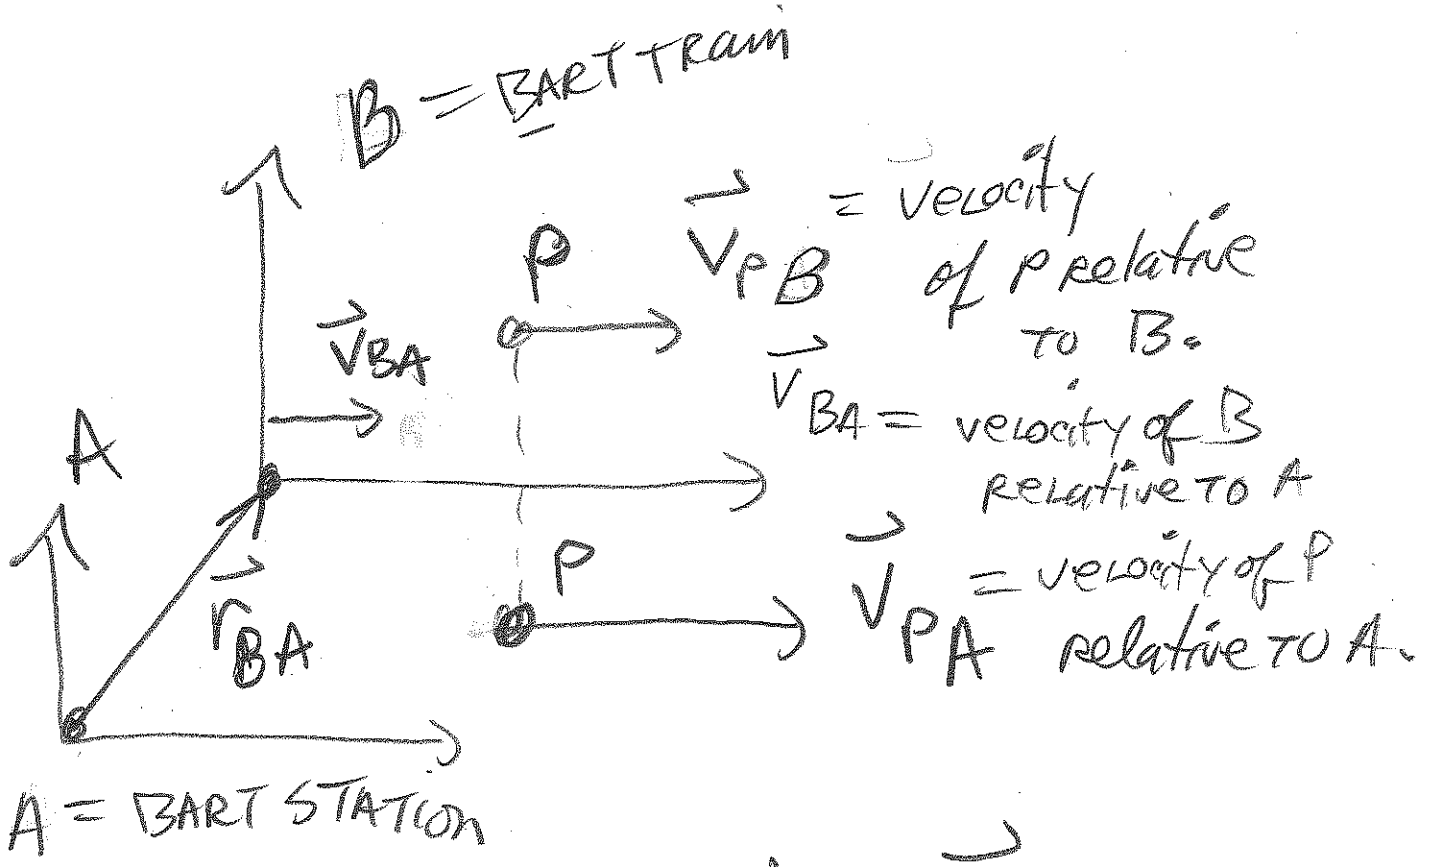 B = BART TRAIN
P
v⃗PB = velocity
of P relative
to B.
v⃗BA
v⃗BA = velocity of B
relative to A
A
P
v⃗PA = velocity of P
relative to A.
r⃗BA
A = BART STATION